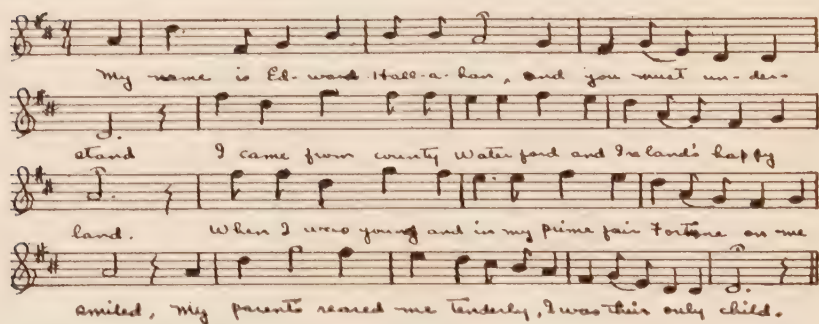 My name is Ed-ward Hall-a-han, and you must un-der-
stand I came from county Waterford and Ireland's happy
land. When I was young and in my prime fair Fortune on me
smiled, My parents reared me tenderly, I was their only child.